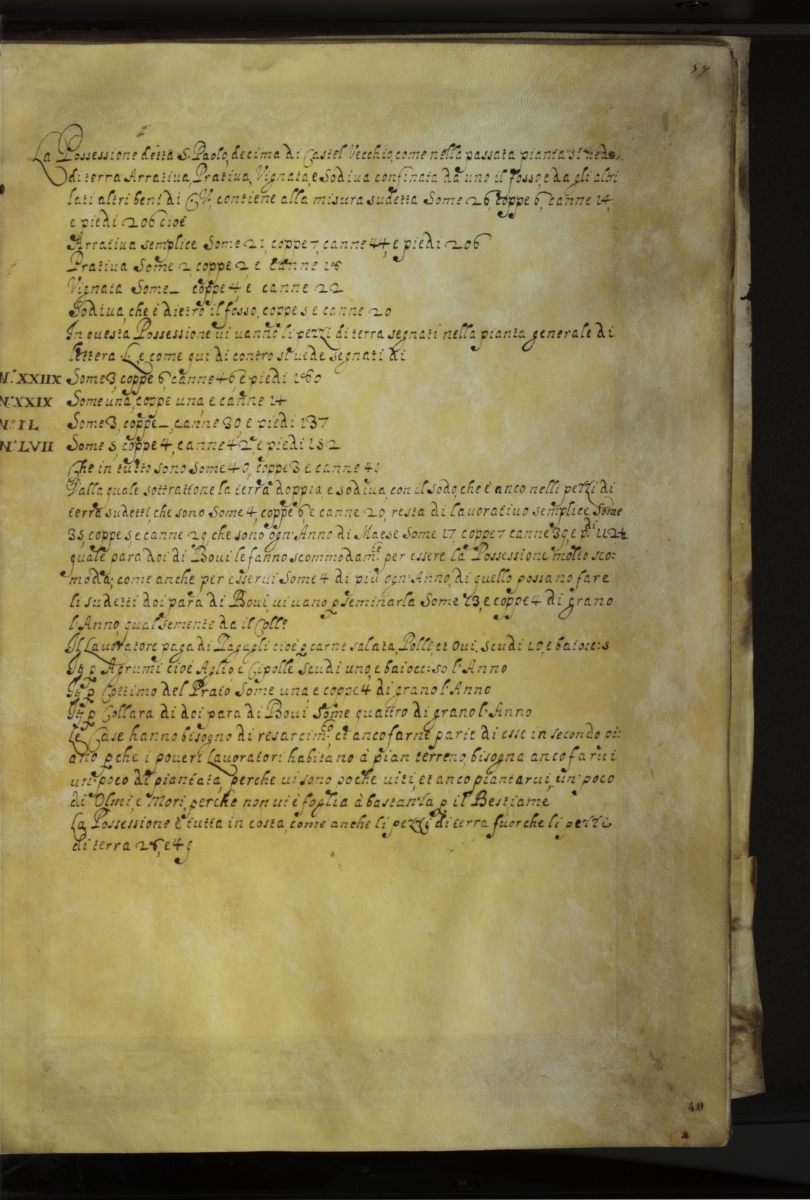 39
La Possessione detta S. Paolo, decima di Castel Vecchio, come nella passata pianta si vede,
di terra Arrativa, Prativa, Vignata, e Sodiva confinata da uno il fosso, e da gli altri
lati altri beni di contiene alla misura sudetta Some 26 coppe 6, canne 14,
e piedi 206 cioè
Arrativa semplice Some 21 coppe 7 canne 44, e piedi 206
Prativa Some 2 coppe 2 e canne 18
Vignata Some_ coppe 4 e canne 22
Sodiva, che è dietro il fosso, coppe 5 e canne 20
In questa Possessione vi vanno li pezzi di terra segnati nella pianta generale di
lettera L e come qui di contro si vede segnati di
N.º XXIIX Some 3 coppe 6 canne 46 e piedi 160
N.º XXIX Some una, coppe una, e canne 14
N.º IL Some 3, coppe_, canne 30, e piedi 137
N.º LVII Some 5 coppe 4, canne 42 e piedi 182
Che in tutto sono Some 40, coppe 3 e canne
Dalla quale sottrattone la terra doppia e sodiva, con il sodo, che è anco nelli pezzi di
terra sudetti che sono Some 4 coppe 6 e canne 20, resta di lavorativo semplice Some
35 coppe 5 e canne 29 che sono ogn'Anno di Maese Some 17 coppe 7 canne 39 e
quale para doi di Bovi le fanno scommodam.te per essere la Possessione molto sco=
moda; come anche per esservi Some 4 di più ogn'Anno, di quello possano fare
li sudetti doi para di Bovi, vi vano p seminarla Some 13, e coppe 4 di grano
l'Anno, qual semente da il Coll.º
Il Lavoratore paga di Pasquali cioè p carne salata, Polli, et Ovi, scudi 10, e baiocc: 5
It p Agrumi cioè Aglio e Cipolle scudi uno, e baiocc: 50 l'Anno
It p Cottimo del Prato Some una e coppe 4 di grano l'Anno
It p Collara di doi para di Bovi Some quattro di grano l'Anno
Le Case hanno bisogno di resarcim.to et anco farne parte di esse in secondo pi=
ano p che i poveri Lavoratori habitano à pian terreno, bisogna anco farvi
un poco di piantata, perche vi sono poche viti, et anco piantarvi, un poco
di Olmi, e Mori, perche non vi è foglia à bastanza p il Bestiame
La Possessione è tutta in costa, come anche li pezzi di terra fuorche li pezzi
di terra 28, e 49
40